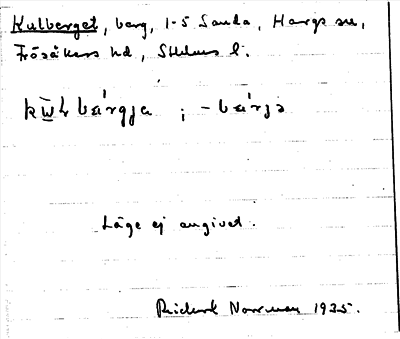 Kulberget, berg, 1-5 Sanda, Hargs sn,
Frösåkers hd, Sthlms l.
; -
Läge ej angivet.
Rickard Norrman 1935.